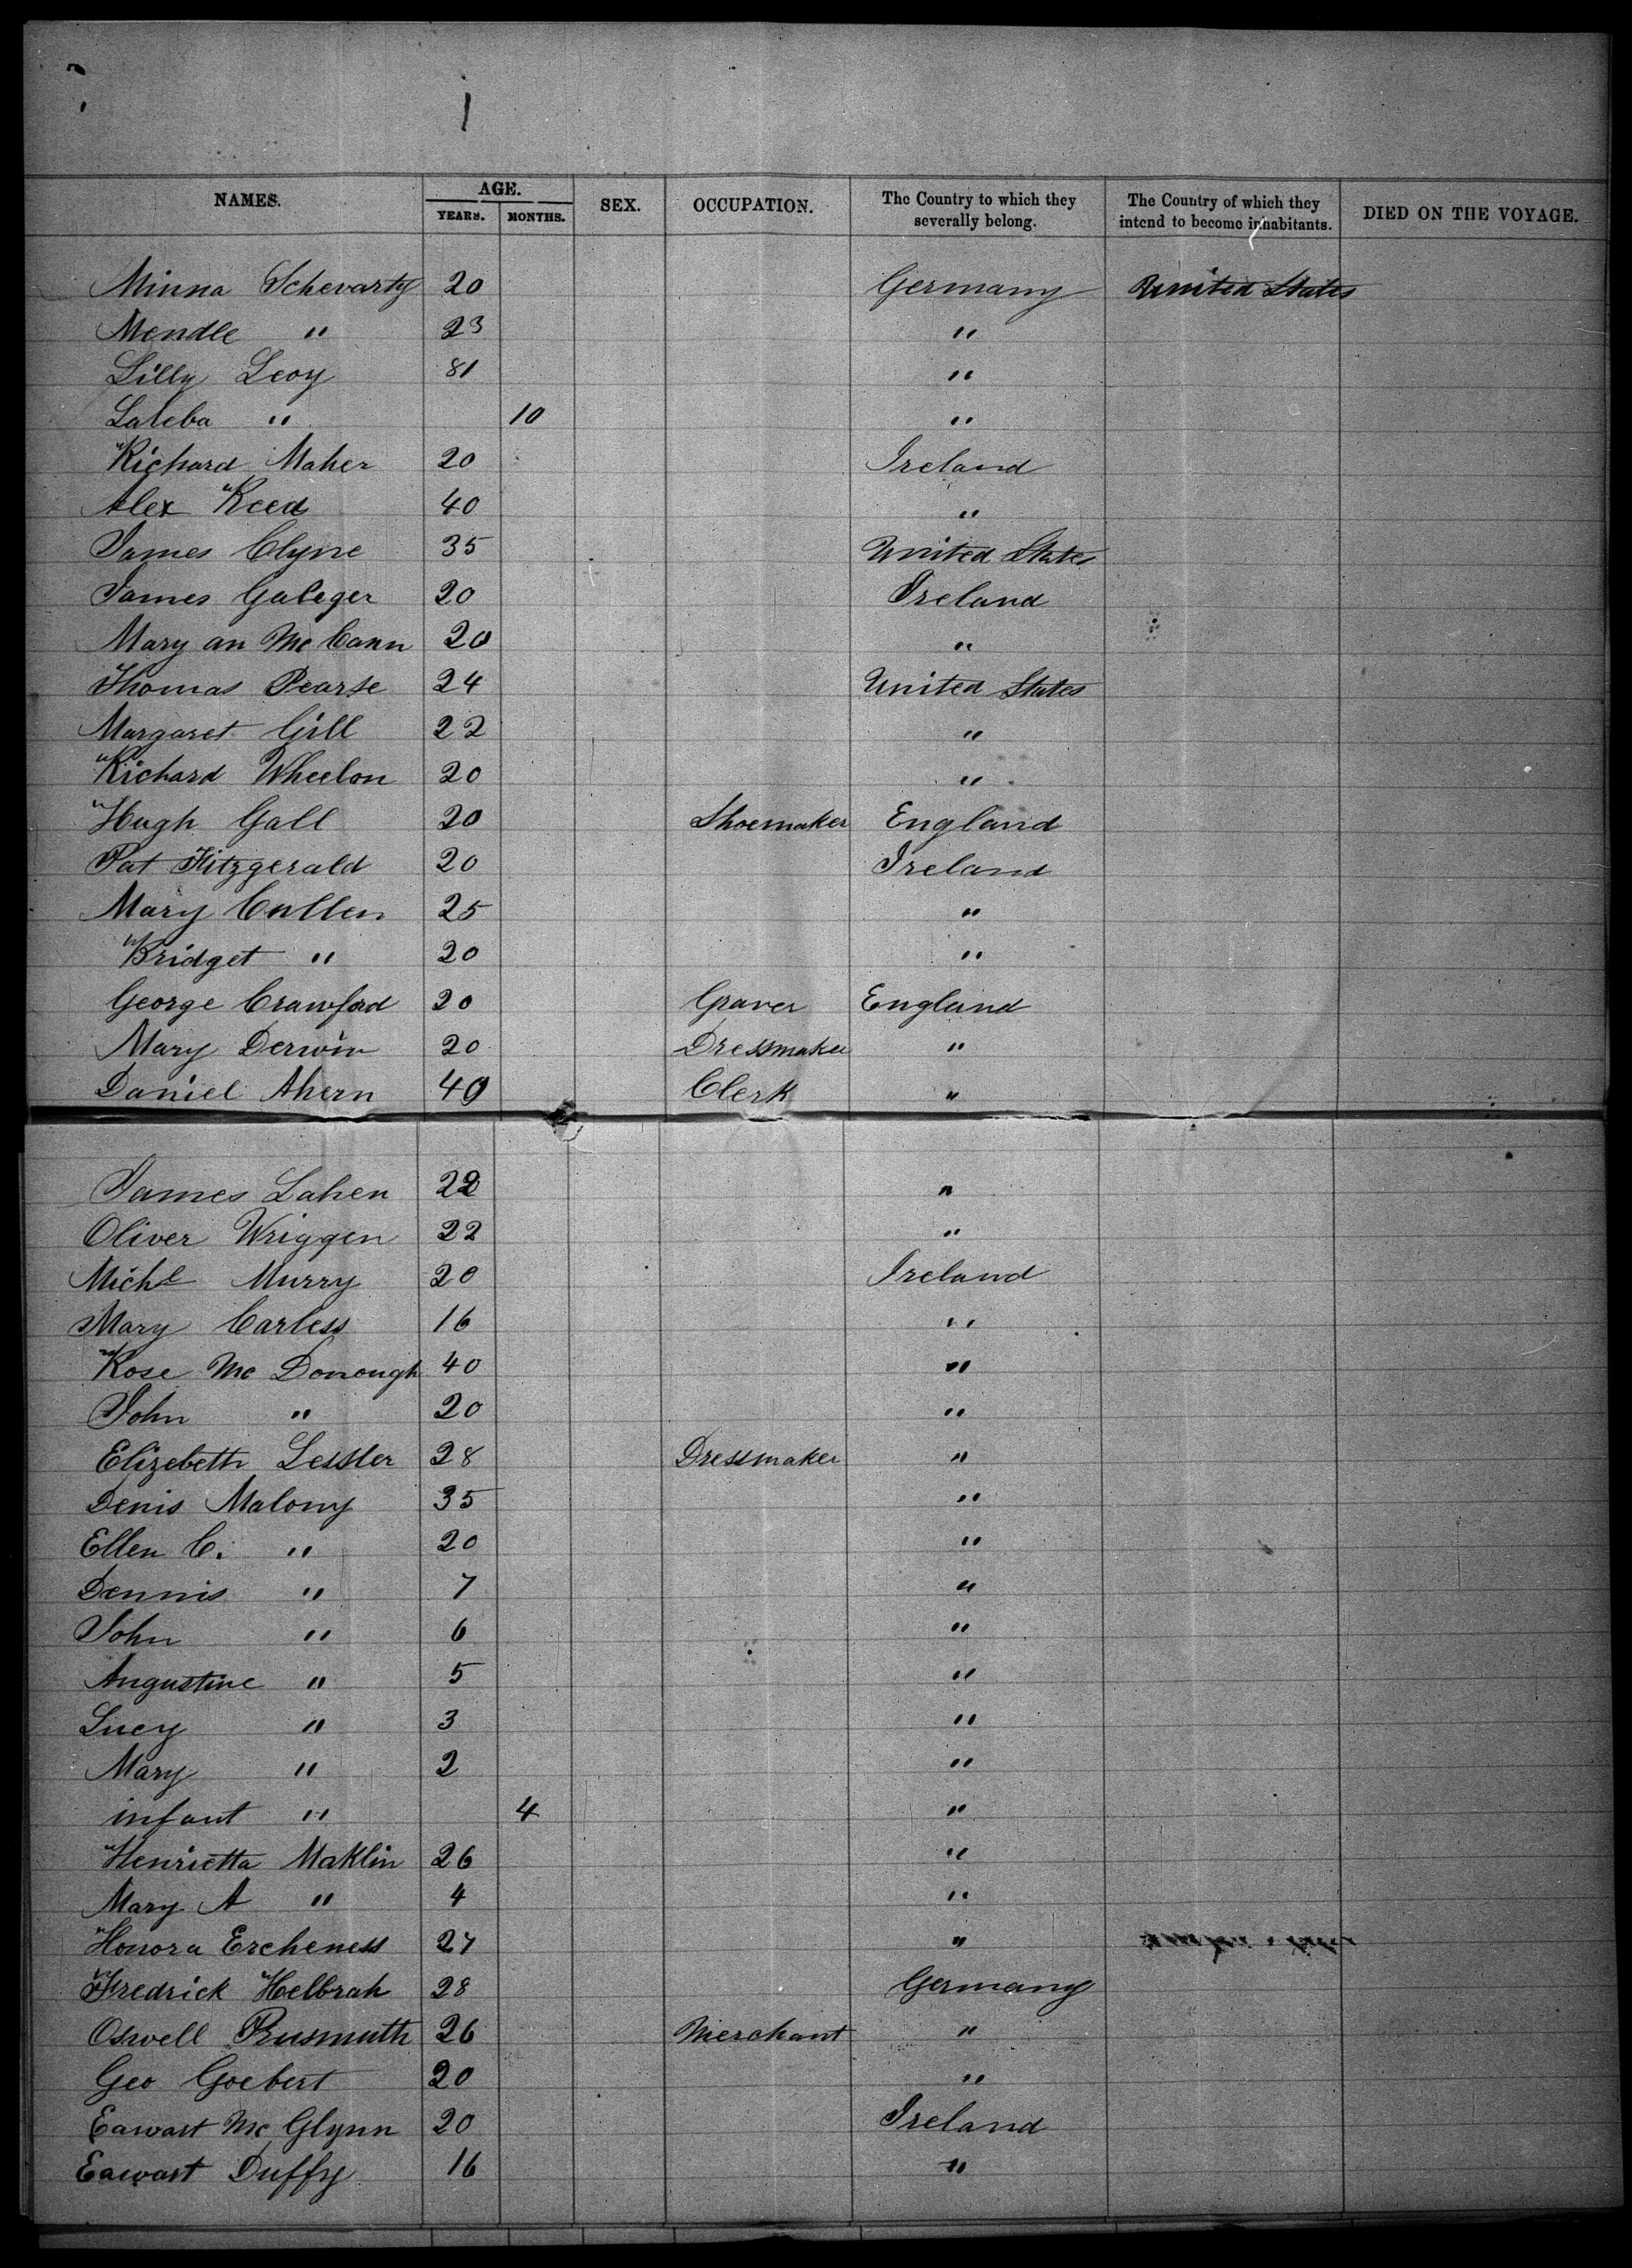 1
NAMES. AGE. YEARS. MONTHS. SEX. OCCUPATION. The Country to which they severally belong. The Country of which they intend to become inhabitants. DIED ON THE VOYAGE.
Minna Schevarty 20 Germany United States
Mendle " 23 "
Lilly Leoy 81 "
Laleba " 10 "
Richard Maher 20 Ireland
Alex Reed 40 "
James Clyne 35 United States
James Galeger 20 Ireland
Mary an Mc Cann 20 "
Thomas Pearse 24 United States
Margaret Gill 22 "
Richard Wheelon 20 "
Hugh Gall 20 Shoemaker England
Pat Fitzgerald 20 Ireland
Mary Cullen 25 "
Bridget " 20 "
George Crawford 20 Graver England
Mary Derwin 20 Dressmaker "
Daniel Ahern 40 Clerk "
James Lahen 22 "
Oliver Wriggen 22 "
Michl Murry 20 Ireland
Mary Carless 16 "
Rose Mc Donough 40 "
John " 20 "
Elizebeth Lessler 28 Dressmaker "
Denis Malony 35 "
Ellen C. " 20 "
Dennis " 7 "
John " 6 "
Augustine " 5 "
Lucy " 3 "
Mary " 2 "
infant " 4 "
Henrietta Maklin 26 "
Mary A " 4 "
Honora Ercheness 27 "
Fredrick Helbrah 28 Germany
Oswell Rusmuth 26 Merchant "
Geo Goebert 20 "
Eawart Mc Glynn 20 Ireland
Eawart Duffy 16 "